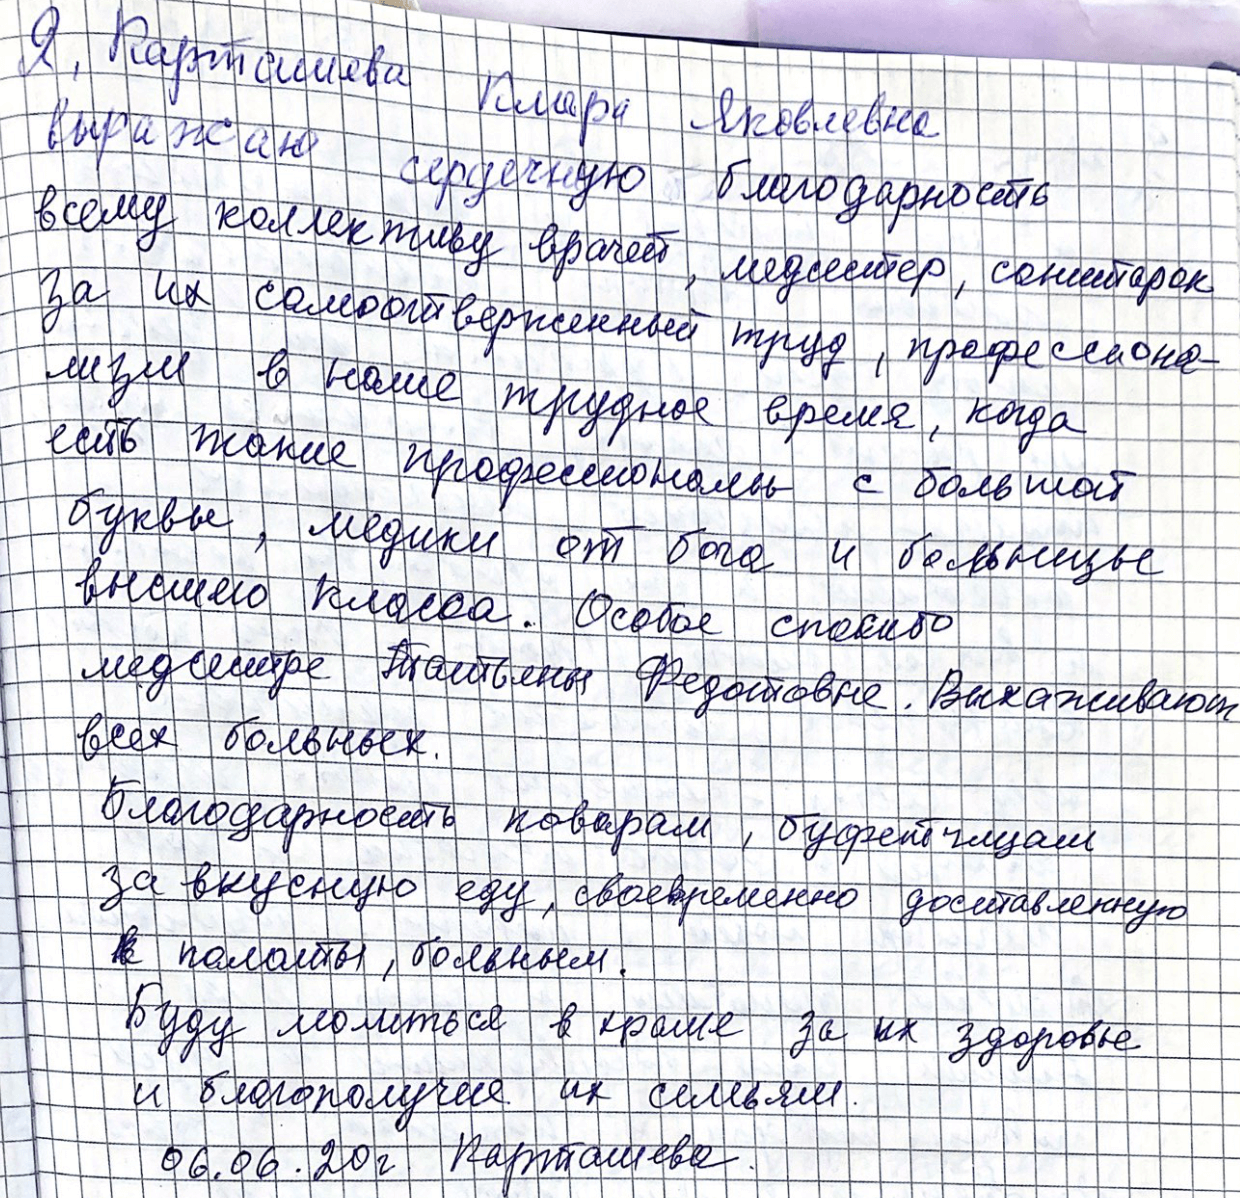 Я, Карташева Клара Яковлевна
выражаю сердечную благодарность
всему коллективу врачей, медсестер, санитарок
за их самоотверженный труд, профессиона-
лизм в наше трудное время, когда
есть такие профессионалы с большой
буквы, медики от бога и больницы
высшего класса. Особое спасибо
медсестре Татьяны Федотовне. Выхаживают
всех больных.
Благодарность поварам, буфетчицам
за вкусную еду, своевременно доставленную
в палаты, больным.
Буду молиться в храме за их здоровье
и благополучие их семьям.
06.06.20г. Карташева.